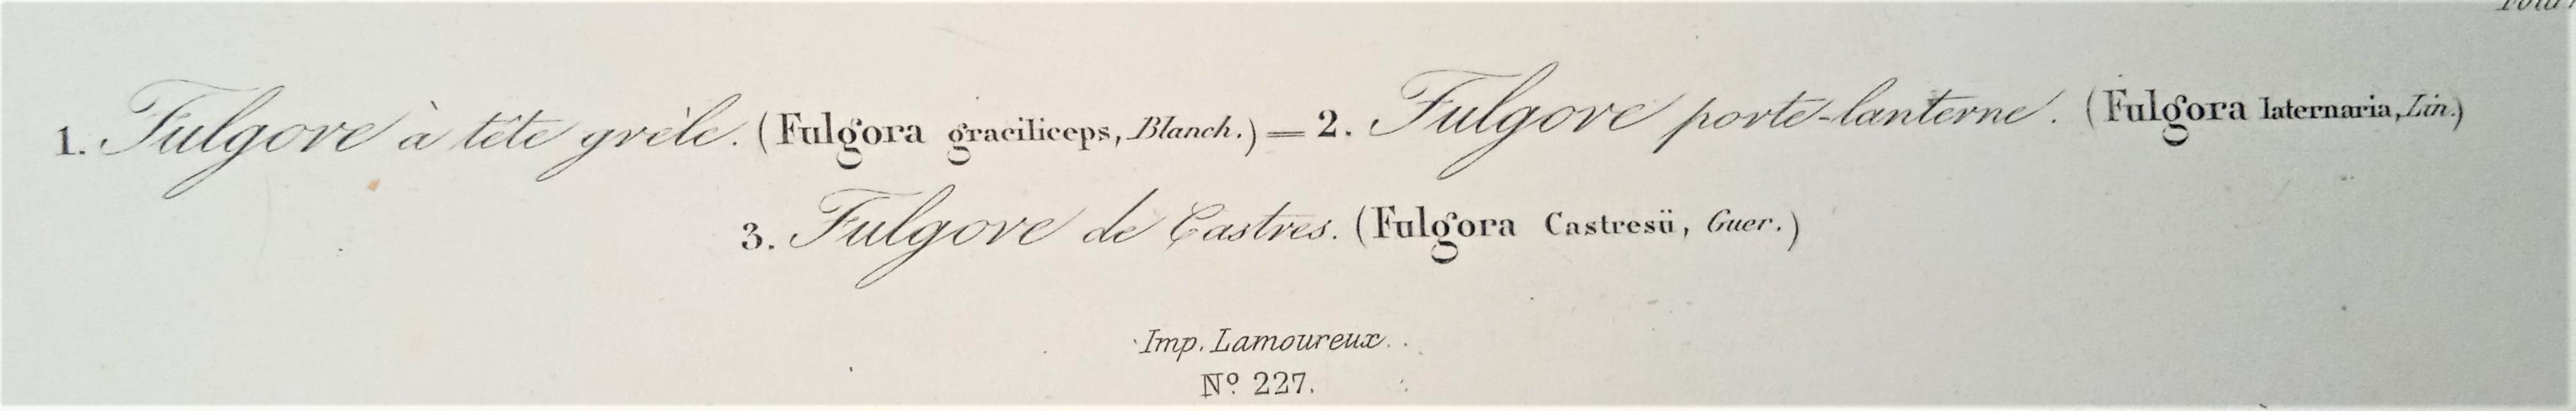 1. Fulgore à tête grèle. (Fulgora graciliceps, Blanch.) = 2. Fulgore porte-lanterne. (Fulgora laternaria, Lin.)
3. Fulgore de Castres. (Fulgora Castresii, Guer.)
Imp. Lamoureux.
Nº 227.